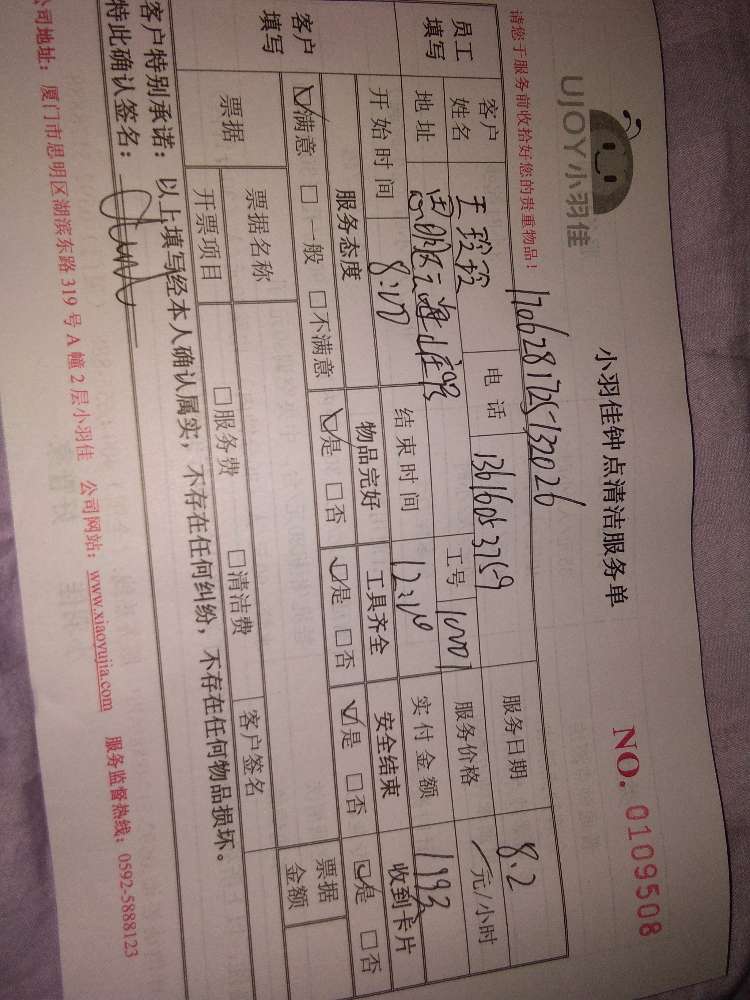 UJOY小羽佳
小羽佳钟点清洁服务单
NO. 0109508
请您于服务前收拾好您的贵重物品！
1706281725132026
员工填写
客户姓名
电话 13616053759
服务日期 8.2
地址
工号 10001
服务价格 元/小时
开始时间 8:00
结束时间 12:10
实付金额 1993
客户填写
服务态度 物品完好 工具齐全 安全结束 收到卡片
☑满意 □一般 □不满意 ☑是 □否 ☑是 □否 ☑是 □否 ☑是 □否
票据 票据名称 客户签名 票据金额
开票项目 □服务费 □清洁费
客户特别承诺：以上填写经本人确认属实，不存在任何纠纷，不存在任何物品损坏。
特此确认签名：
公司地址：厦门市思明区湖滨东路319号A幢2层小羽佳 公司网站：www.xiaoyujia.com 服务监督热线：0592-5888123